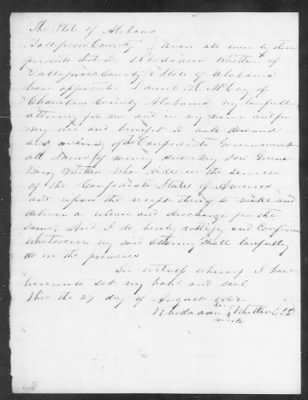 The State of Alabama
Tallapoosa County } Know all men by these
presents that I Rhodaann Whitten of
Tallapoosa County & State of Alabama
have appointed Daniel H. McCoy of
Chambers County Alabama my lawful
attorney for me and in my name and for
my use and benefit to ask demand
and receive of the Confederate Government
all sums of money due my son George
Berry Whitten who died in the service
of the Confederate States of America
and upon the receipt thereof to make and
deliver a release and discharge for the
same, And I do hereby ratify and confirm
whatsoever my said attorney shall lawfully
do in the premises
In witness whereof I have
hereunto set my hand and seal
this the 27 day of August 1862
her
Rhodaann X Whitten
mark